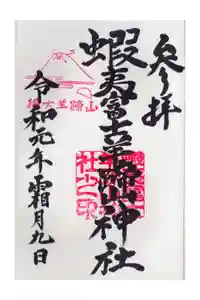 参拝
蝦夷富士羊蹄山神社
令和元年霜月九日